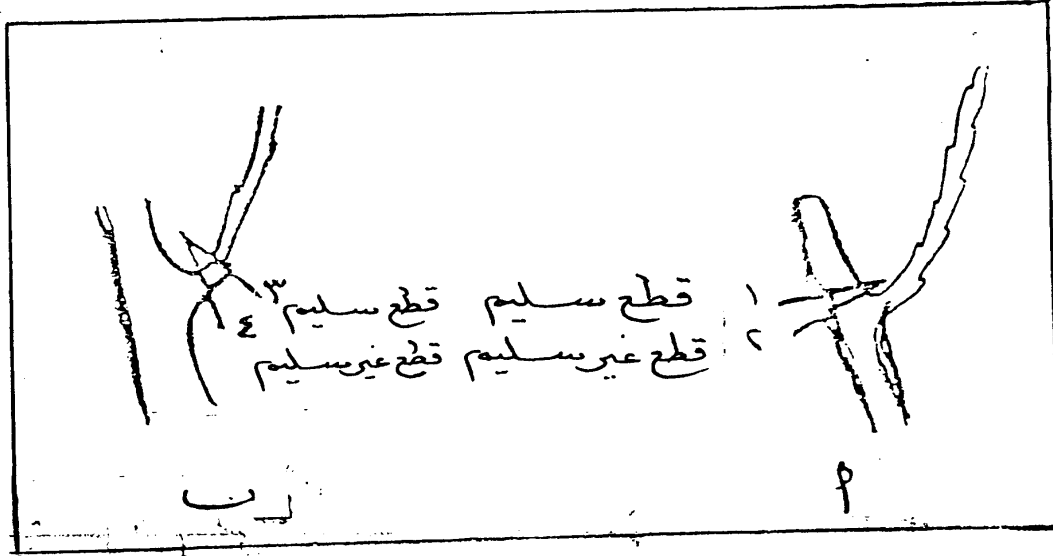 ١ قطع سليم قطع سليم ٣
٢ قطع غير سليم قطع غير سليم ٤
م ب